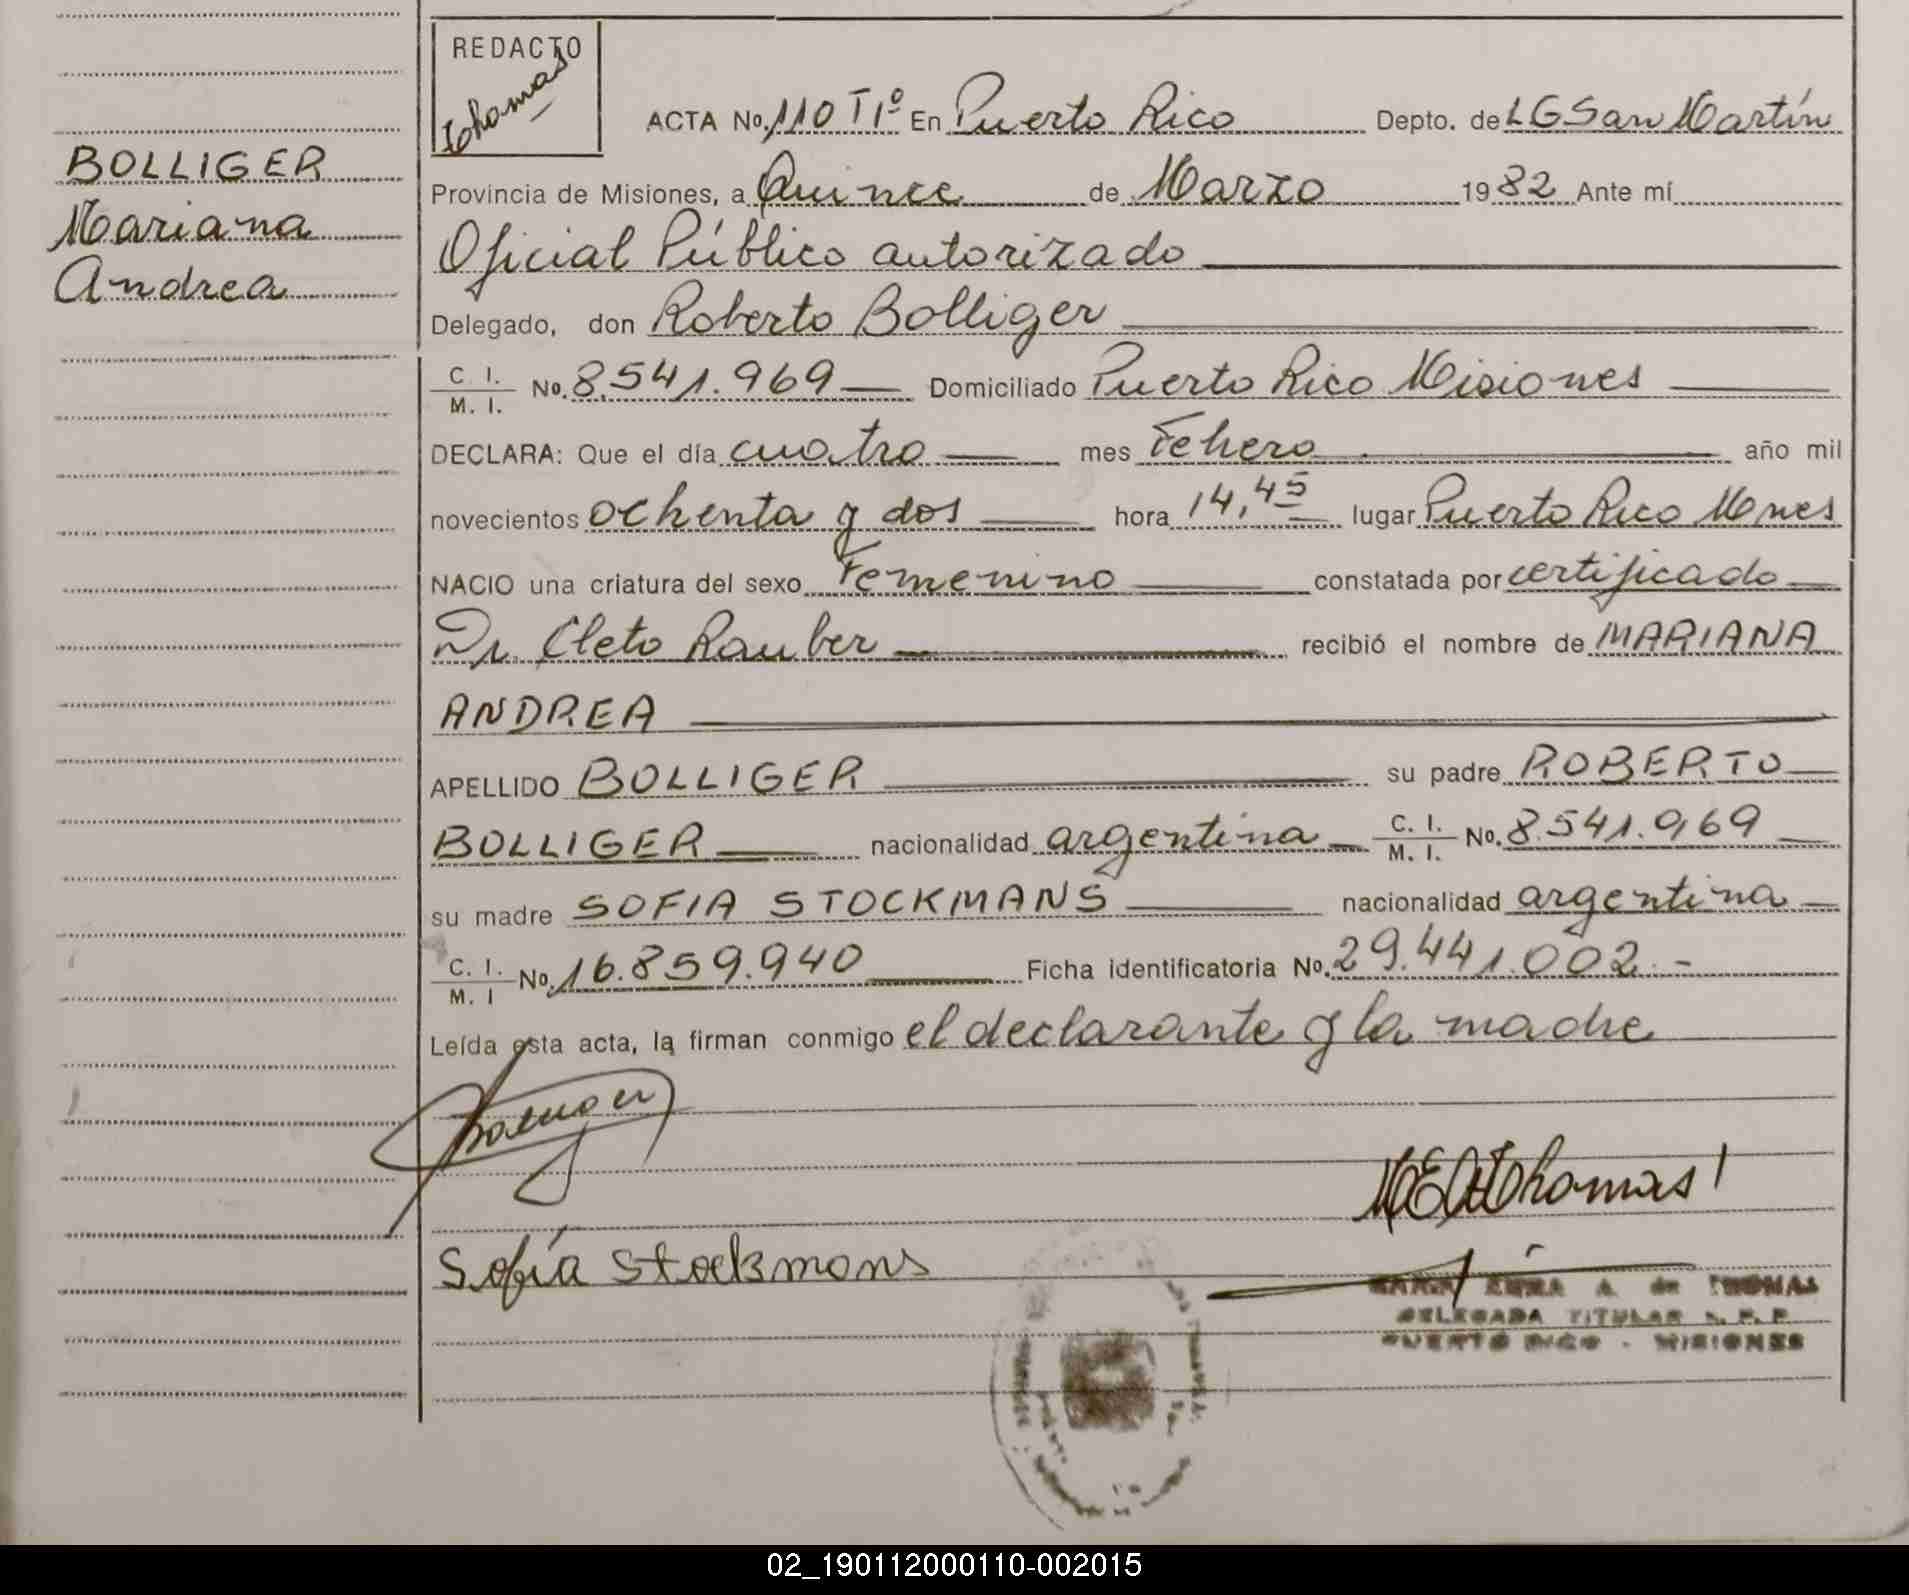 BOLLIGER
Mariana
Andrea
REDACTO
Thomas
ACTA No. 110 T1º En Puerto Rico Depto. de LGSan Martín
Provincia de Misiones, a Quince de Marzo 1982 Ante mí
Oficial Público autorizado
Delegado, don Roberto Bolliger
C. I. / M. I. No. 8.541.969 Domiciliado Puerto Rico Misiones
DECLARA: Que el día cuatro mes Febrero año mil
novecientos ochenta y dos hora 14,45 lugar Puerto Rico Mnes
NACIO una criatura del sexo Femenino constatada por certificado
Dr. Cleto Rauber recibió el nombre de MARIANA
ANDREA
APELLIDO BOLLIGER su padre ROBERTO
BOLLIGER nacionalidad argentina C. I. / M. I. No. 8.541.969
su madre SOFIA STOCKMANS nacionalidad argentina
C. I. / M. I No. 16.859.940 Ficha identificatoria No. 29.441.002.-
Leída esta acta, la firman conmigo el declarante y la madre
Sofía Stockmans
A. de THOMAS
DELEGADA TITULAR
PUERTO RICO - MISIONES
02_190112000110-002015